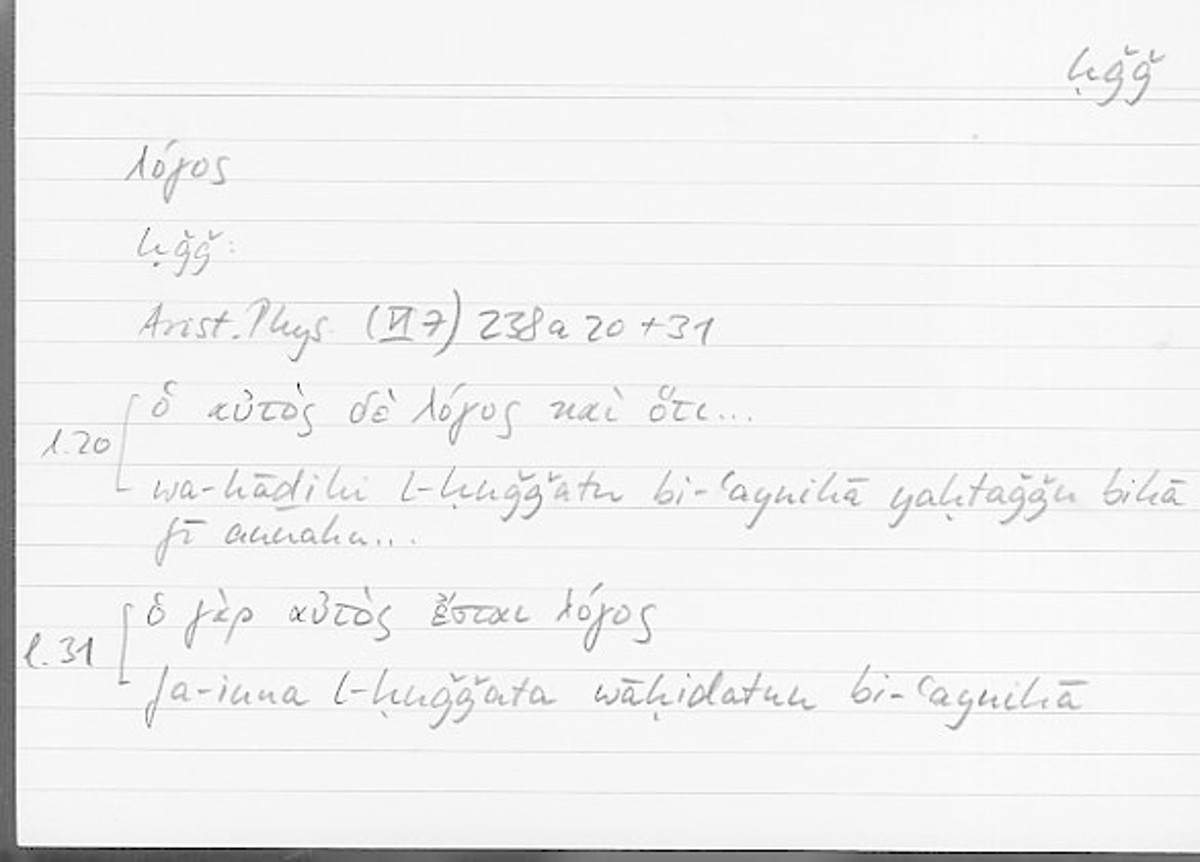 ḥǧǧ
λόγος
ḥǧǧ:
Arist. Phys. (VI 7) 238a 20 + 31
l. 20
ὁ αὐτὸς δὲ λόγος καὶ ὅτι...
wa-hāḏihi l-ḥuǧǧatu bi-ʿaynihā yaḥtaǧǧu bihā
fī annahu...
l. 31
ὁ γὰρ αὐτὸς ἔσται λόγος
fa-inna l-ḥuǧǧata wāḥidatun bi-ʿaynihā